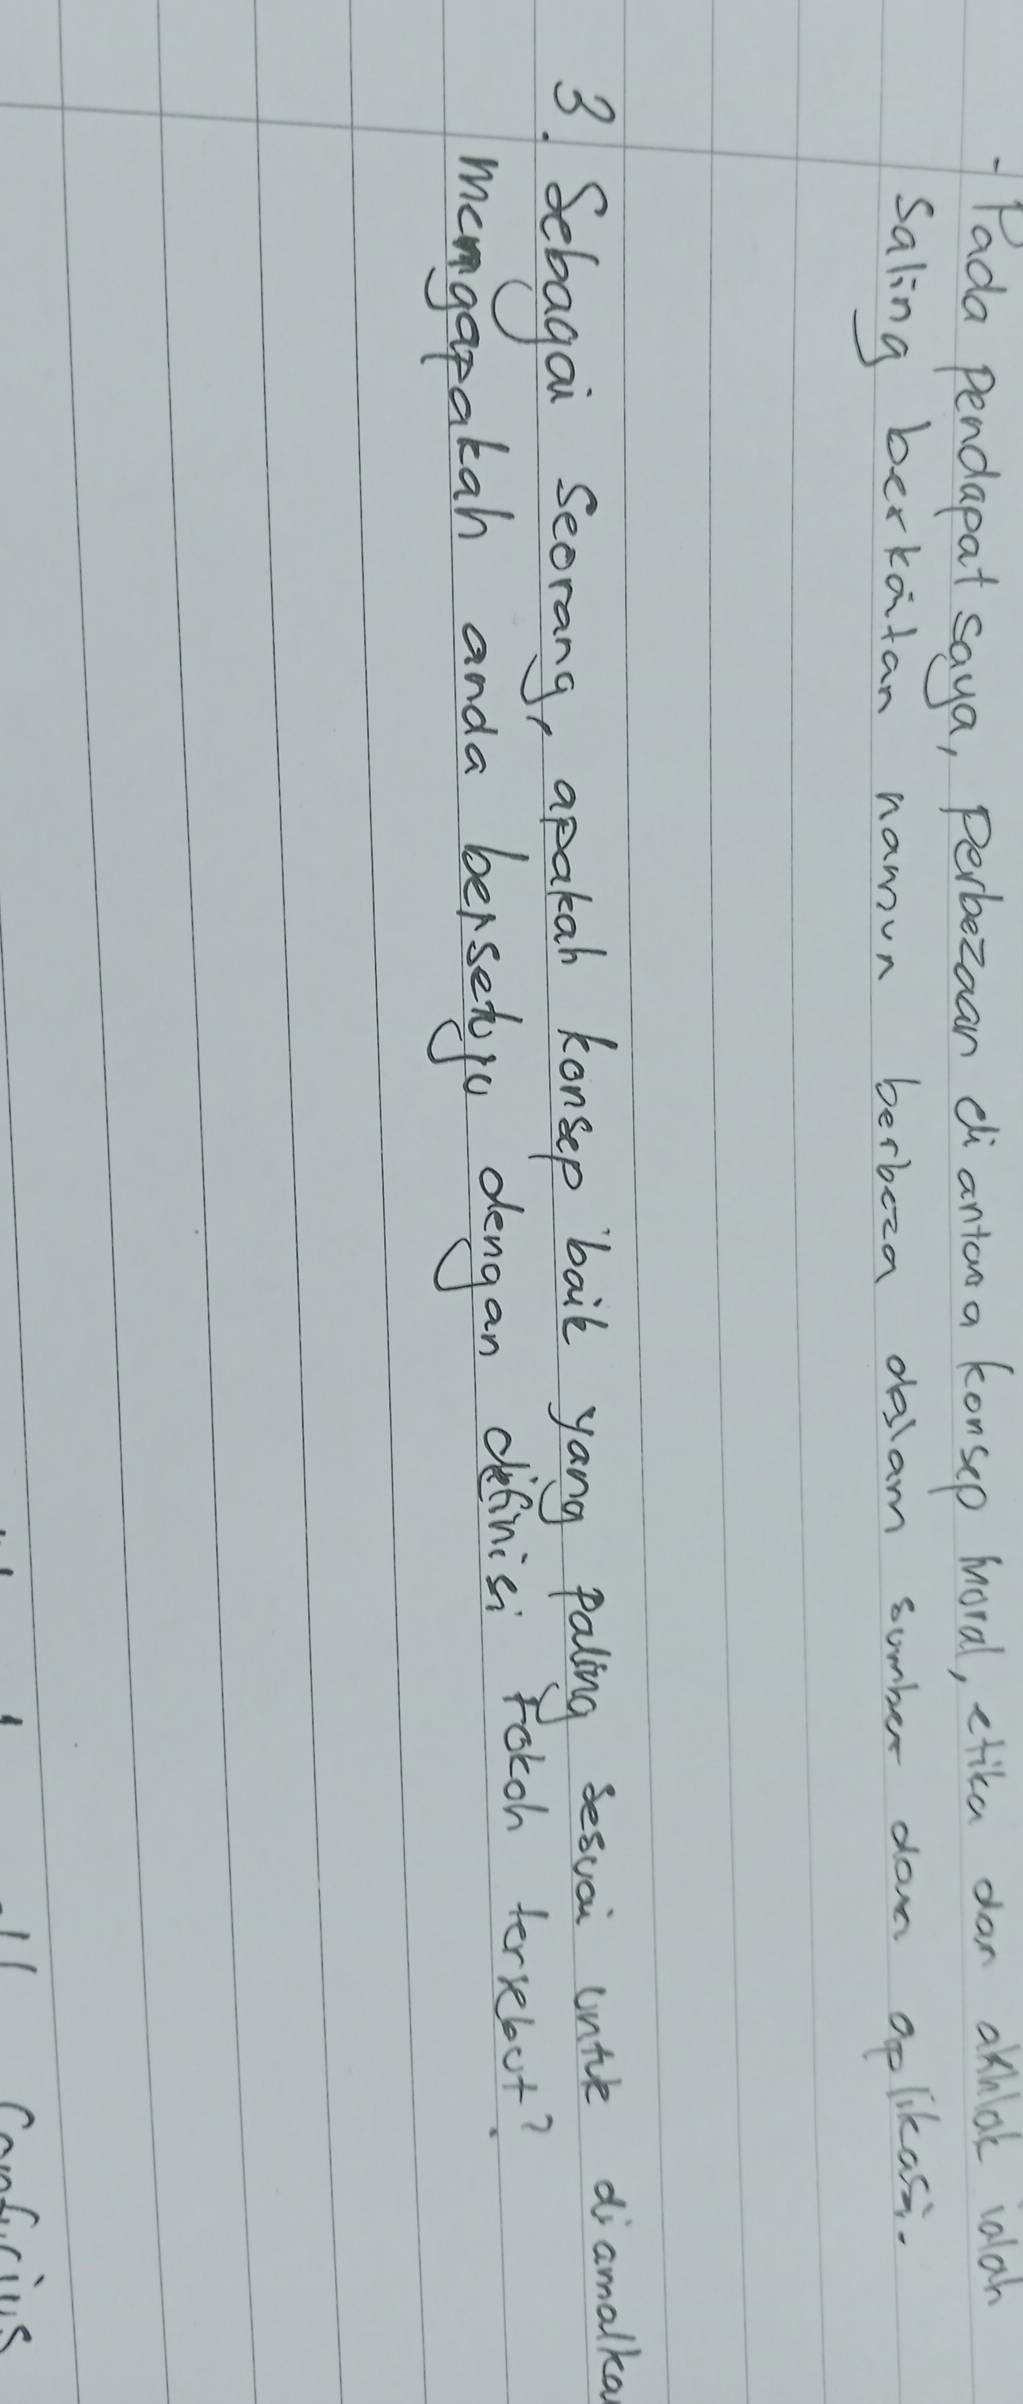 - Pada pendapat saya, perbezaan di antara konsep moral, etika dan akhlak ialah
saling berkaitan namun berbeza dalam sumber dan aplikasi.
3. Sebagai seorang, apakah konsep 'baik yang paling sesuai untuk diamalkan
memgapakah anda bersetuju dengan definisi tokoh tersebut?
Confucius